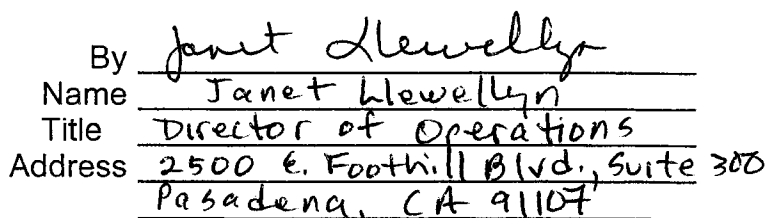 By Janet Llewellyn
Name Janet Llewellyn
Title Director of Operations
Address 2500 E. Foothill Blvd., Suite 300
Pasadena, CA 91107